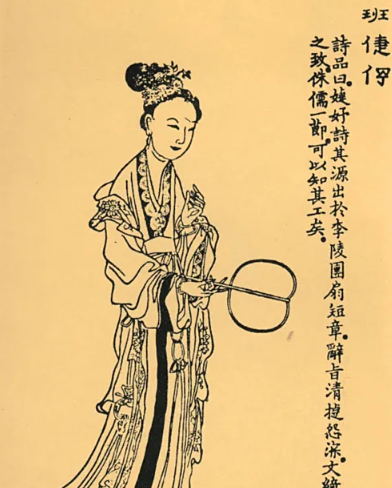 班倢伃
詩品曰。婕妤詩其源出於李陵團扇短章。辭旨清捷怨深。文綺
之致。侏儒一節。可以知其工矣。